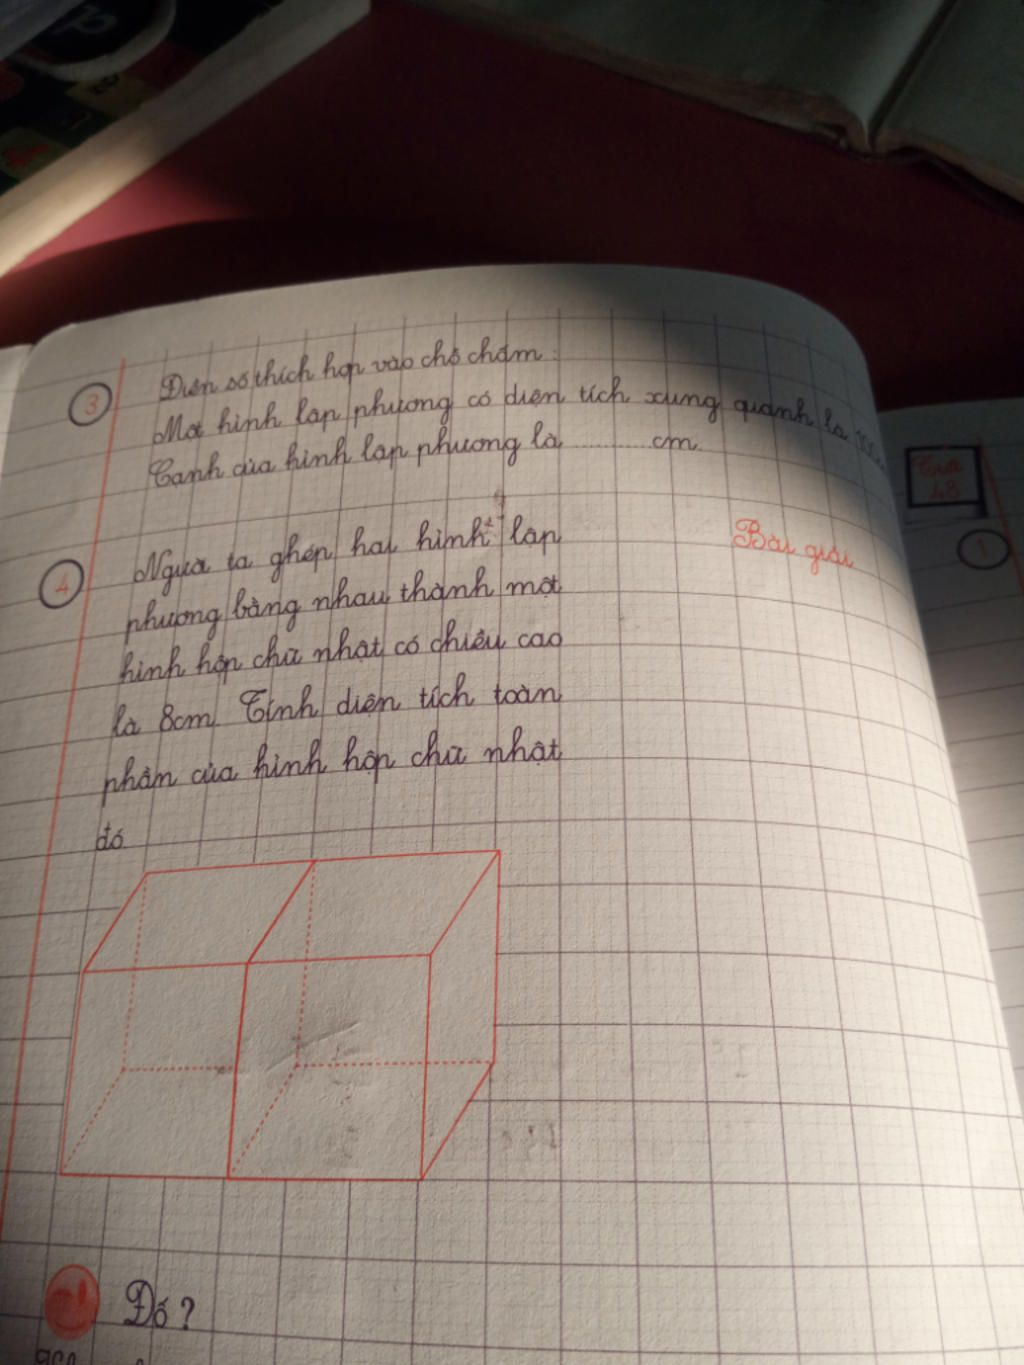 3
Điền số thích hợp vào chỗ chấm:
Một hình lập phương có diện tích xung quanh là 100
Cạnh của hình lập phương là ......... cm.
4
Người ta ghép hai hình lập
phương bằng nhau thành một
hình hộp chữ nhật có chiều cao
là 8cm. Tính diện tích toàn
phần của hình hộp chữ nhật
đó
Bài giải
1
Đố?